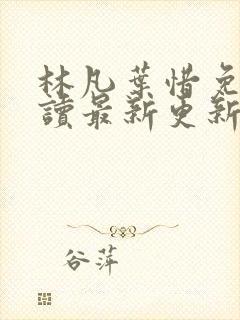 林凡葉惜免
讀最新更新
谷萍